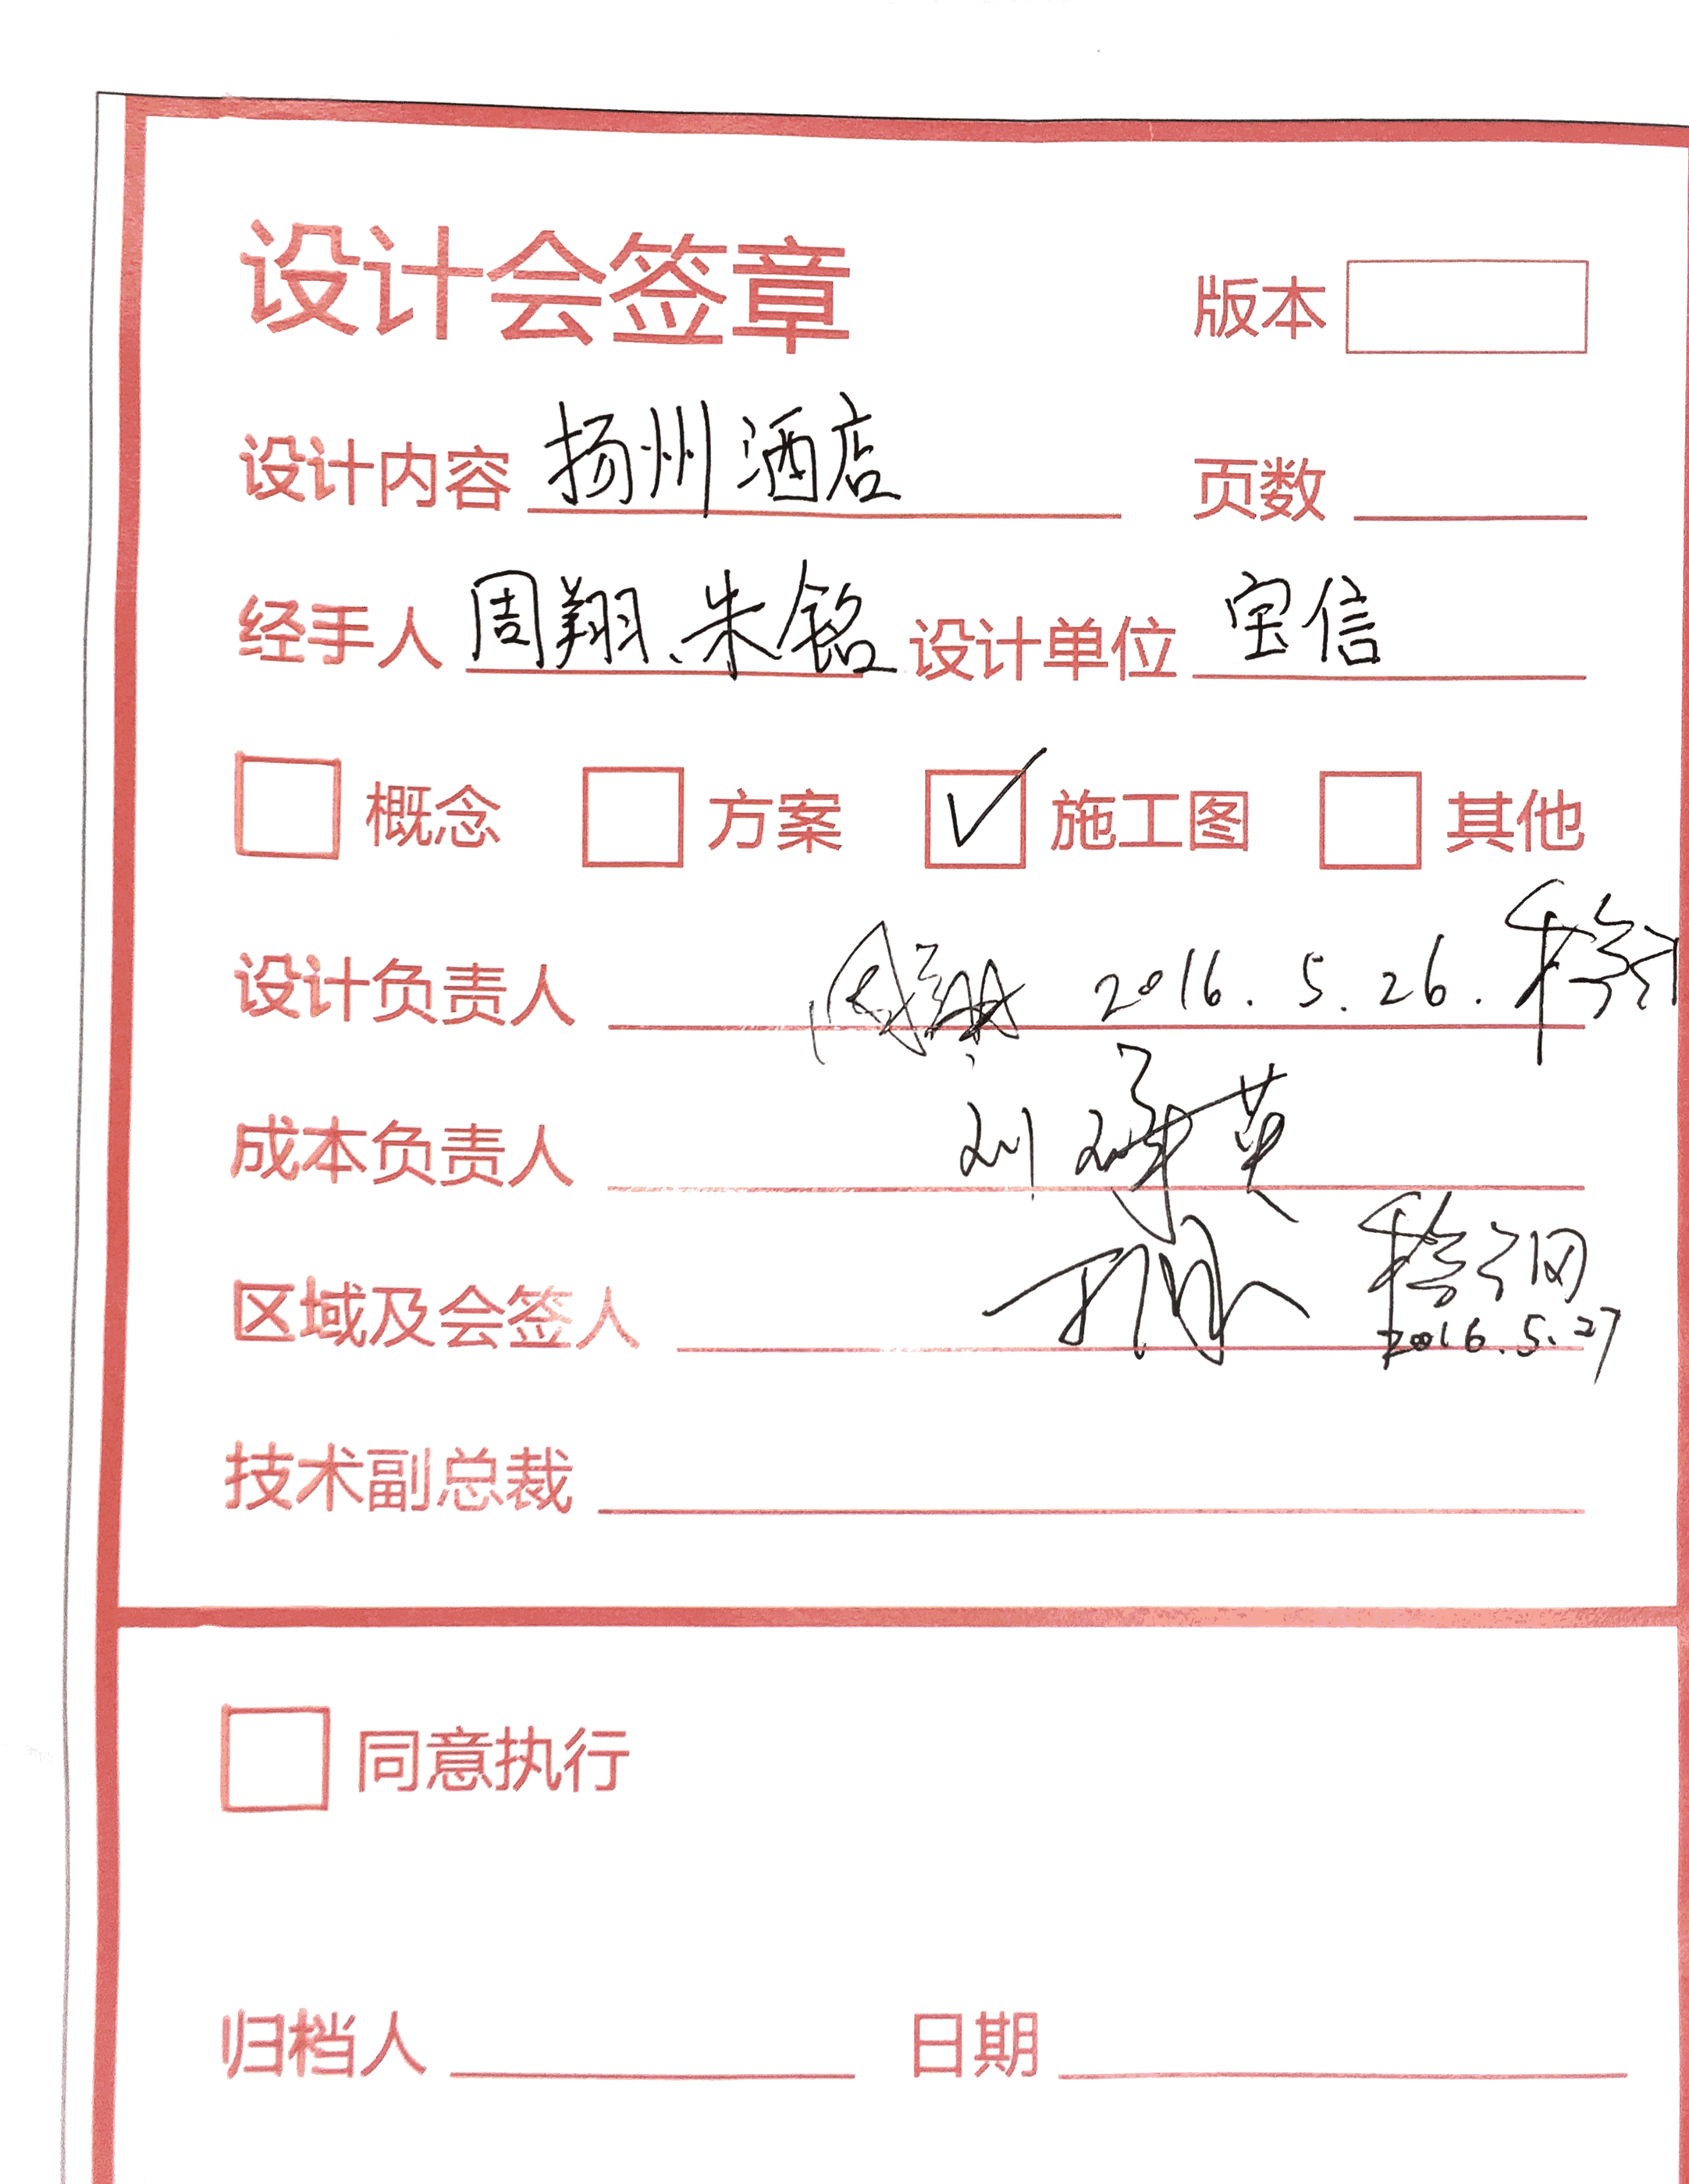 设计会签章 版本
设计内容 扬州酒店 页数
经手人 周翔、朱铭 设计单位 宝信
概念 方案 施工图 其他
设计负责人 周翔 2016.5.26.
成本负责人 刘 英
区域及会签人
2016.5.27
技术副总裁
同意执行
归档人 日期